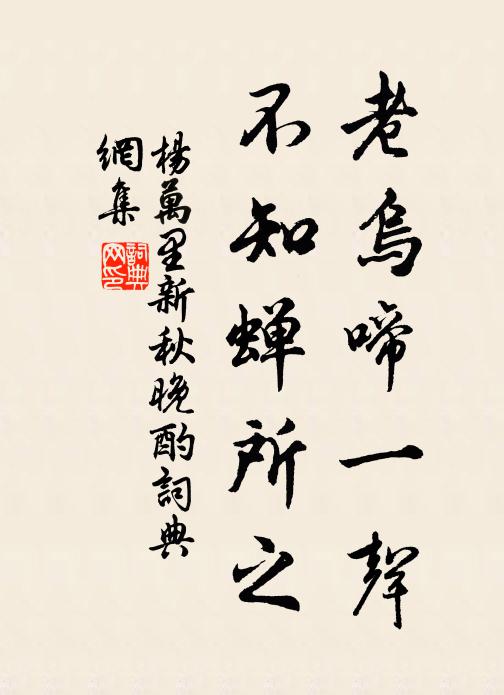 老烏啼一聲
不知蟬所之
楊萬里新秋晚酌詞典
網集
詞典
网印